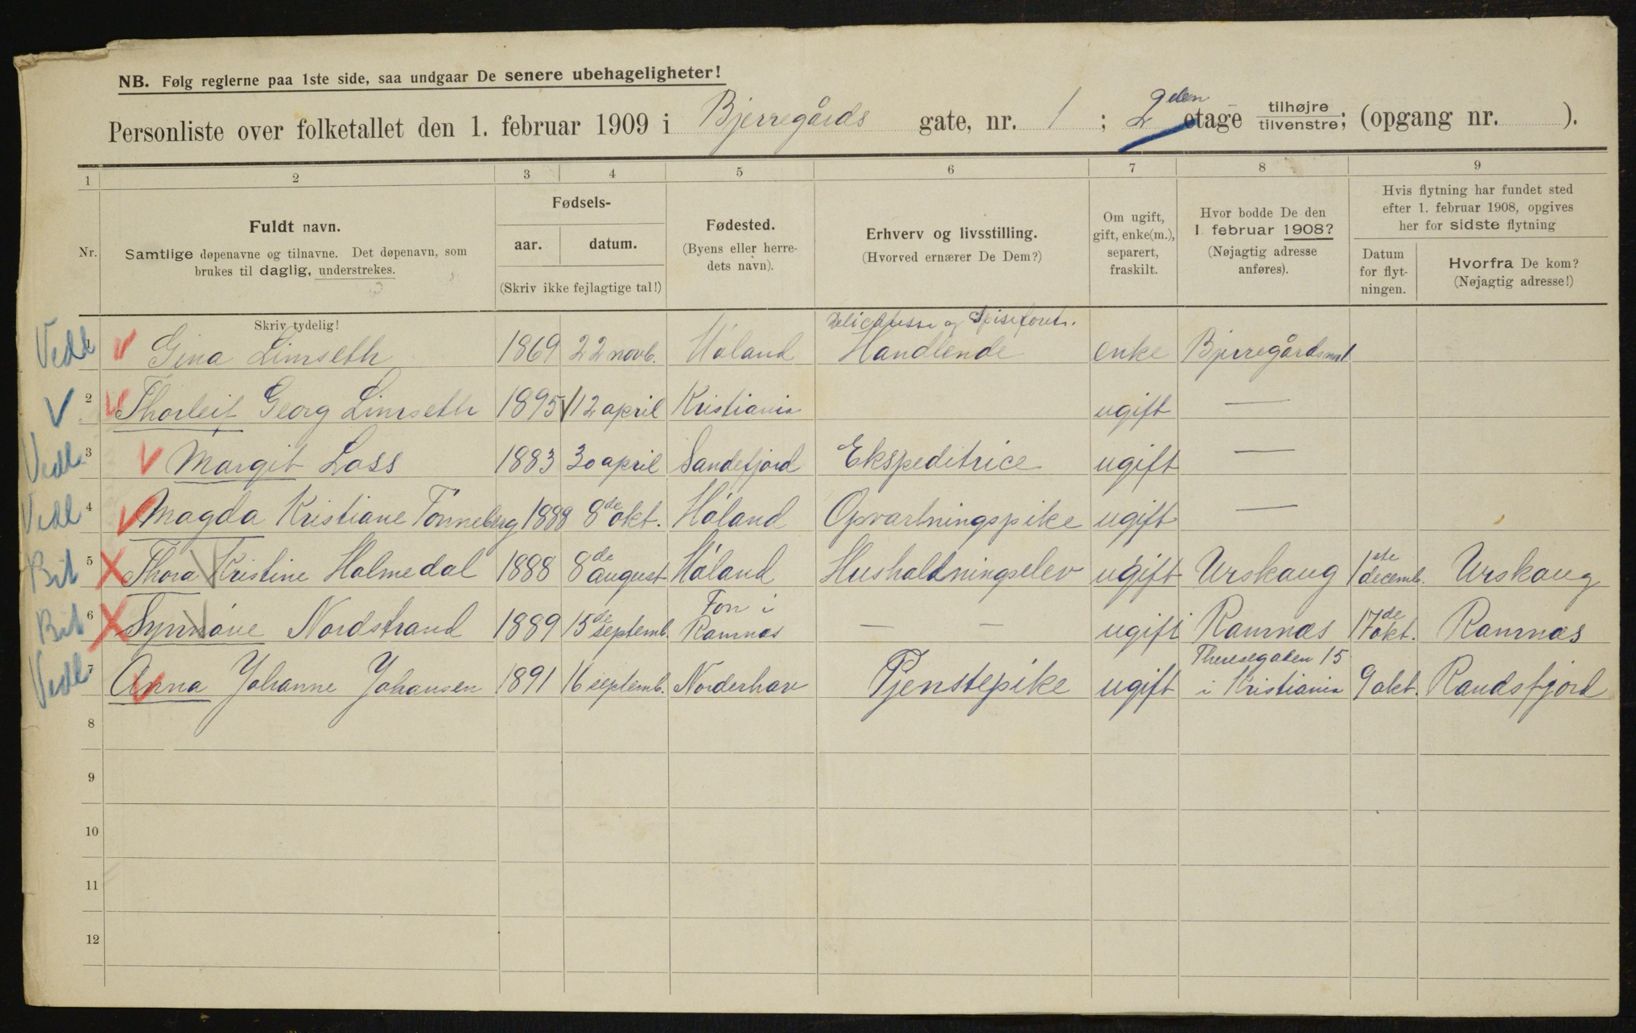 NB. Følg reglerne paa 1ste side, saa undgaar De senere ubehageligheter!
Personliste over folketallet den 1. februar 1909 i Bjerregårds gate, nr. 1 ; 2 2den etage tilhøjre tilvenstre; (opgang nr. ).
1 2 3 4 5 6 7 8 9
Nr.
Fuldt navn.
Samtlige døpenavne og tilnavne. Det døpenavn, som
brukes til daglig, understrekes.
Skriv tydelig!
Fødsels-
aar. datum.
(Skriv ikke fejlagtige tal!)
Fødested.
(Byens eller herre-
dets navn).
Erhverv og livsstilling.
(Hvorved ernærer De Dem?)
Om ugift,
gift, enke(m.),
separert,
fraskilt.
Hvor bodde De den
1. februar 1908?
(Nøjagtig adresse
anføres).
Hvis flytning har fundet sted
efter 1. februar 1908, opgives
her for sidste flytning
Datum
for flyt-
ningen.
Hvorfra De kom?
(Nøjagtig adresse!)
Delicatesse og Spiseforetn.
Vedk V Gina Limseth 1869 22 novb. Høland Handlende enke Bjerregårdsgt 1
V 2 V Thorleif Georg Limseth 1895 12 april Kristiania ugift —
Vedk 3 V Margit Lass 1883 30 april Sandefjord Ekspeditrice ugift —
Vedk 4 V Magda Kristiane Tønneberg 1888 8de okt. Høland Opvartningspike ugift —
Bit 5 X Thora Kristine Holmedal 1888 8de august Høland Husholdningselev ugift Urskaug 1ste decemb. Urskaug
Bit 6 X Synnøve Nordstrand 1889 15de septemb. Fon i Ramnæs — — ugift Ramnæs 17de okt. Ramnæs
Vedk 7 V Anna Johanne Johansen 1891 16 septemb. Norderhov Tjenstepike ugift Theresegaden 15 i Kristiania 9 okt. Randsfjord
8
9
10
11
12